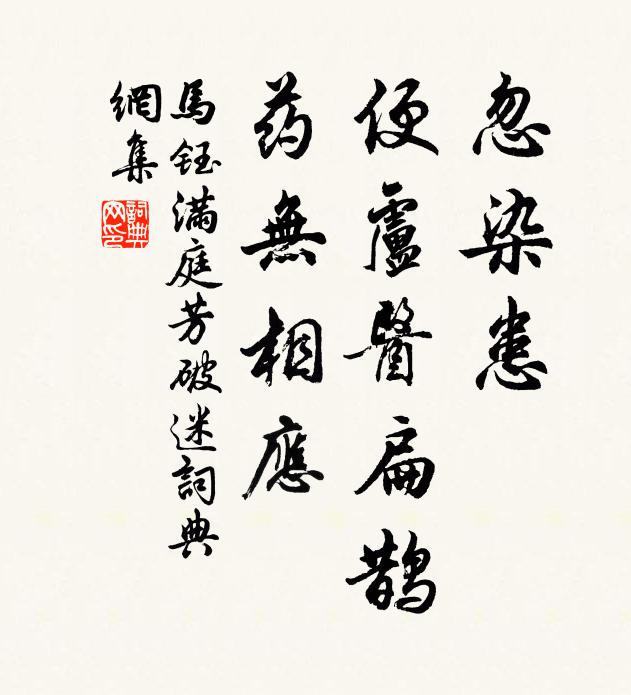 忽染患
便盧醫扁鵲
药無相應
馬鈺滿庭芳破迷詞典
網集
詞典網印